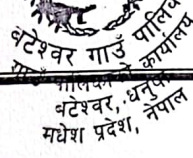 बटेश्वर गाउँ पालिका
गाउँ पालिकाको कार्यालय
बटेश्वर, धनुषा
मधेश प्रदेश, नेपाल